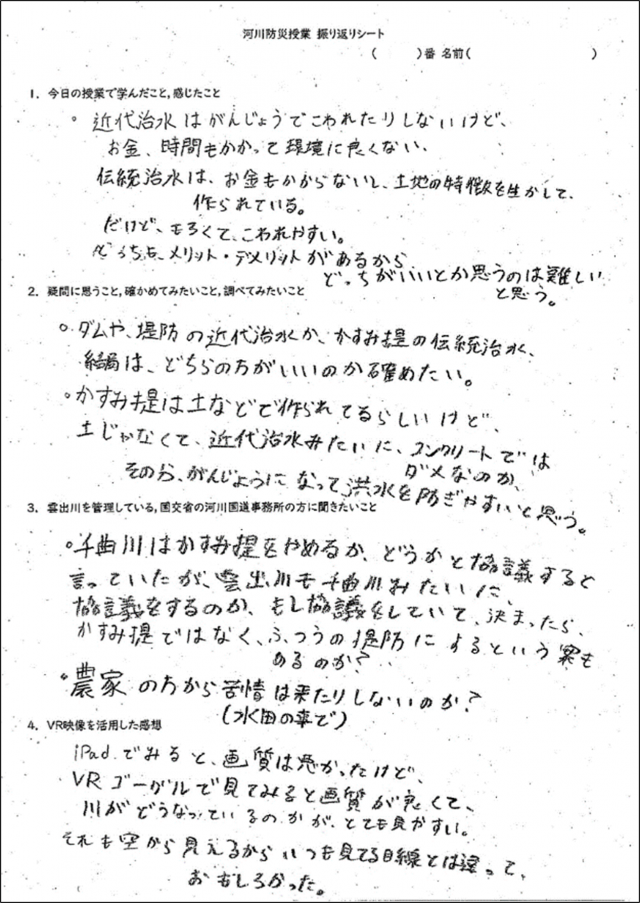 河川防災授業 振り返りシート
(　　)番 名前(　　　　　　　)
1. 今日の授業で学んだこと,感じたこと
。近代治水はがんじょうでこわれたりしないけど、
お金、時間もかかって環境に良くない、
伝統治水は、お金もかからないし、土地の特徴を生かして、
作られている。
だけど、もろくて、こわれやすい。
どっちも、メリット・デメリットがあるから
どっちがいいとか思うのは難しい
と思う。
2. 疑問に思うこと,確かめてみたいこと,調べてみたいこと
○ダムや、堤防の近代治水か、かすみ堤の伝統治水、
結局は、どちらの方がいいのか確めたい。
・かすみ堤は土などで作られてるらしいけど、
土じゃなくて、近代治水みたいに、コンクリートでは
ダメなのか、
そのぶん、がんじょうになって洪水を防ぎやすいと思う。
3. 雲出川を管理している,国交省の河川国道事務所の方に聞きたいこと
・千曲川はかすみ堤をやめるか、どうかと協議すると
言っていたが、雲出川も千曲川みたいに、
協議をするのか、もし協議をしていて、決まったら、
かすみ堤ではなく、ふつうの堤防によるという案も
あるのか?
・農家の方から苦情は来たりしないのか?
(水田の事で)
4. VR映像を活用した感想
iPadでみると、画質は悪かったけど、
VRゴーグルで見てみると画質が良くて、
川がどうなっているのかが、とても見やすい。
それも空から見えるからいつも見てる目線とは違って、
おもしろかった。